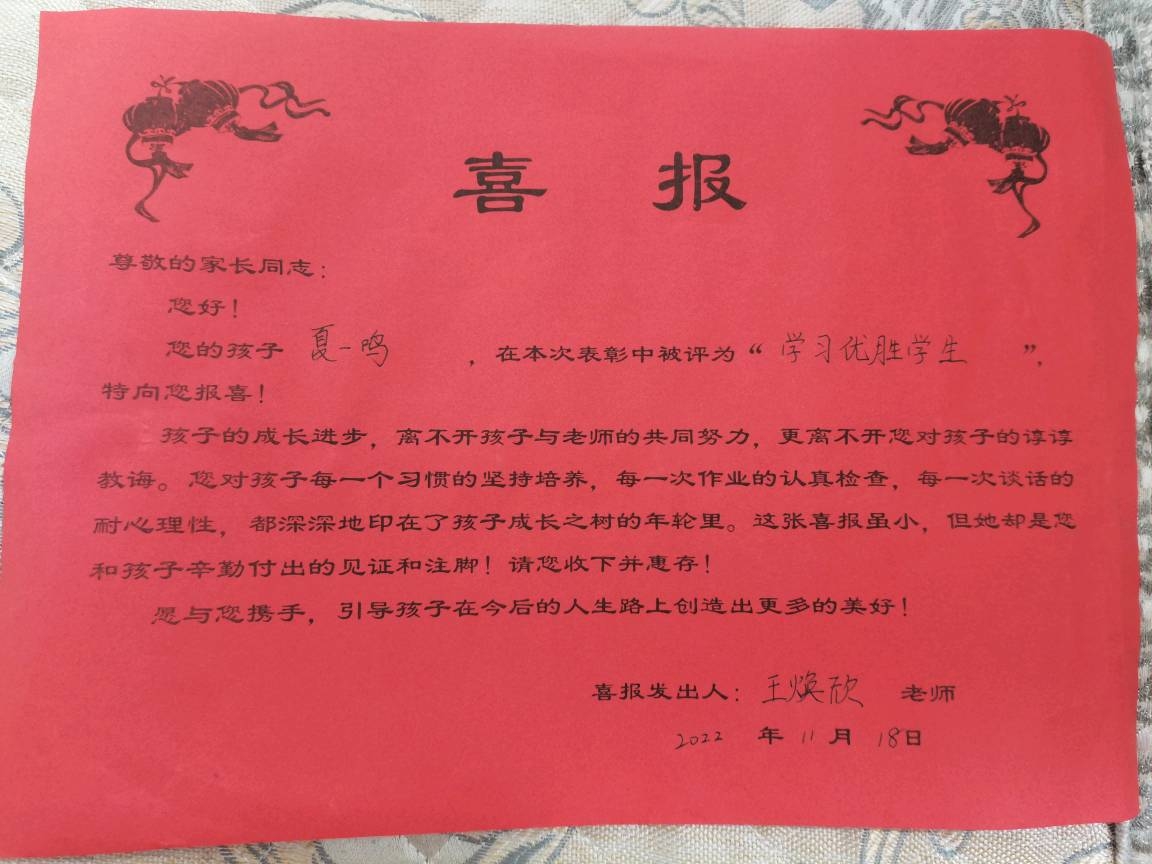 喜报
尊敬的家长同志：
您好！
您的孩子 夏一鸣 ，在本次表彰中被评为“学习优胜学生”，
特向您报喜！
孩子的成长进步，离不开孩子与老师的共同努力，更离不开您对孩子的谆谆
教诲。您对孩子每一个习惯的坚持培养，每一次作业的认真检查，每一次谈话的
耐心理性，都深深地印在了孩子成长之树的年轮里。这张喜报虽小，但她却是您
和孩子辛勤付出的见证和注脚！请您收下并惠存！
愿与您携手，引导孩子在今后的人生路上创造出更多的美好！
喜报发出人：王焕欣 老师
2022 年 11 月 18日